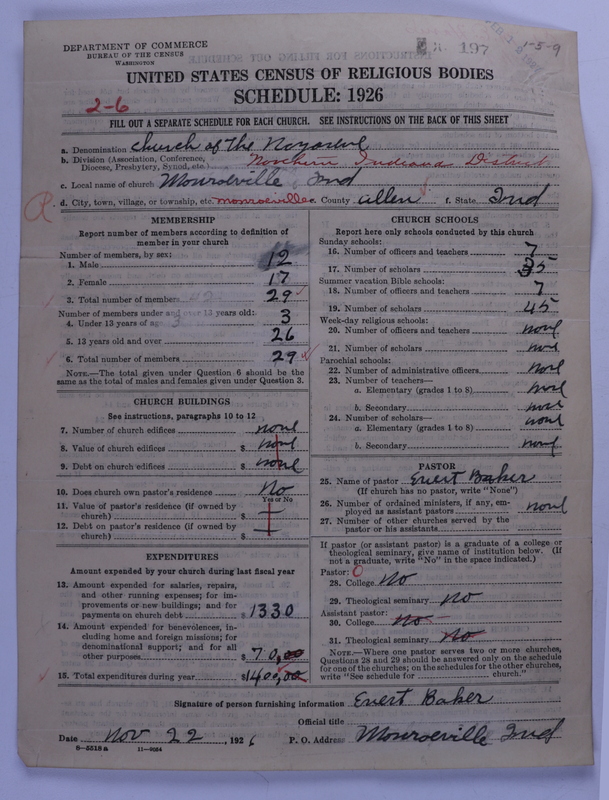 DEPARTMENT OF COMMERCE
BUREAU OF THE CENSUS
WASHINGTON
197
1-5-9
UNITED STATES CENSUS OF RELIGIOUS BODIES
SCHEDULE: 1926
2-6
FILL OUT A SEPARATE SCHEDULE FOR EACH CHURCH. SEE INSTRUCTIONS ON THE BACK OF THIS SHEET
a. Denomination Church of The
b. Division (Association, Conference, Diocese, Presbytery, Synod, etc.) Northern Indiana District
c. Local name of church Monroeville Ind
d. City, town, village, or township, etc. Monroeville e. County Allen f. State Ind
MEMBERSHIP
Report number of members according to definition of member in your church
Number of members, by sex:
1. Male 12
2. Female 17
3. Total number of members 29
Number of members under and over 13 years old:
4. Under 13 years of age 3
5. 13 years old and over 26
6. Total number of members 29
NOTE.—The total given under Question 6 should be the same as the total of males and females given under Question 3.
CHURCH BUILDINGS
See instructions, paragraphs 10 to 12
7. Number of church edifices none
8. Value of church edifices $ none
9. Debt on church edifices $ none
10. Does church own pastor's residence No
Yes or No
11. Value of pastor's residence (if owned by church) $ —
12. Debt on pastor's residence (if owned by church) $ —
EXPENDITURES
Amount expended by your church during last fiscal year
13. Amount expended for salaries, repairs, and other running expenses; for improvements or new buildings; and for payments on church debt $ 1330
14. Amount expended for benevolences, including home and foreign missions; for denominational support; and for all other purposes $ 70,00
15. Total expenditures during year $ 1400,00
CHURCH SCHOOLS
Report here only schools conducted by this church
Sunday schools:
16. Number of officers and teachers 7
17. Number of scholars 35
Summer vacation Bible schools:
18. Number of officers and teachers 7
19. Number of scholars 45
Week-day religious schools:
20. Number of officers and teachers none
21. Number of scholars none
Parochial schools:
22. Number of administrative officers none
23. Number of teachers—
a. Elementary (grades 1 to 8) none
b. Secondary none
24. Number of scholars—
a. Elementary (grades 1 to 8) none
b. Secondary none
PASTOR
25. Name of pastor Evert Baker
(If church has no pastor, write "None")
26. Number of ordained ministers, if any, employed as assistant pastors none
27. Number of other churches served by the pastor or his assistants
If pastor (or assistant pastor) is a graduate of a college or theological seminary, give name of institution below. (If not a graduate, write "No" in the space indicated.)
Pastor: 0
28. College No
29. Theological seminary No
Assistant pastor:
30. College No
31. Theological seminary No
NOTE.—Where one pastor serves two or more churches, Questions 28 and 29 should be answered only on the schedule for one of the churches; on the schedules for the other churches, write "See schedule for church."
Signature of person furnishing information Evert Baker
Official title
Date Nov 22, 1926 P. O. Address Monroeville Ind
8-5518a 11-9084